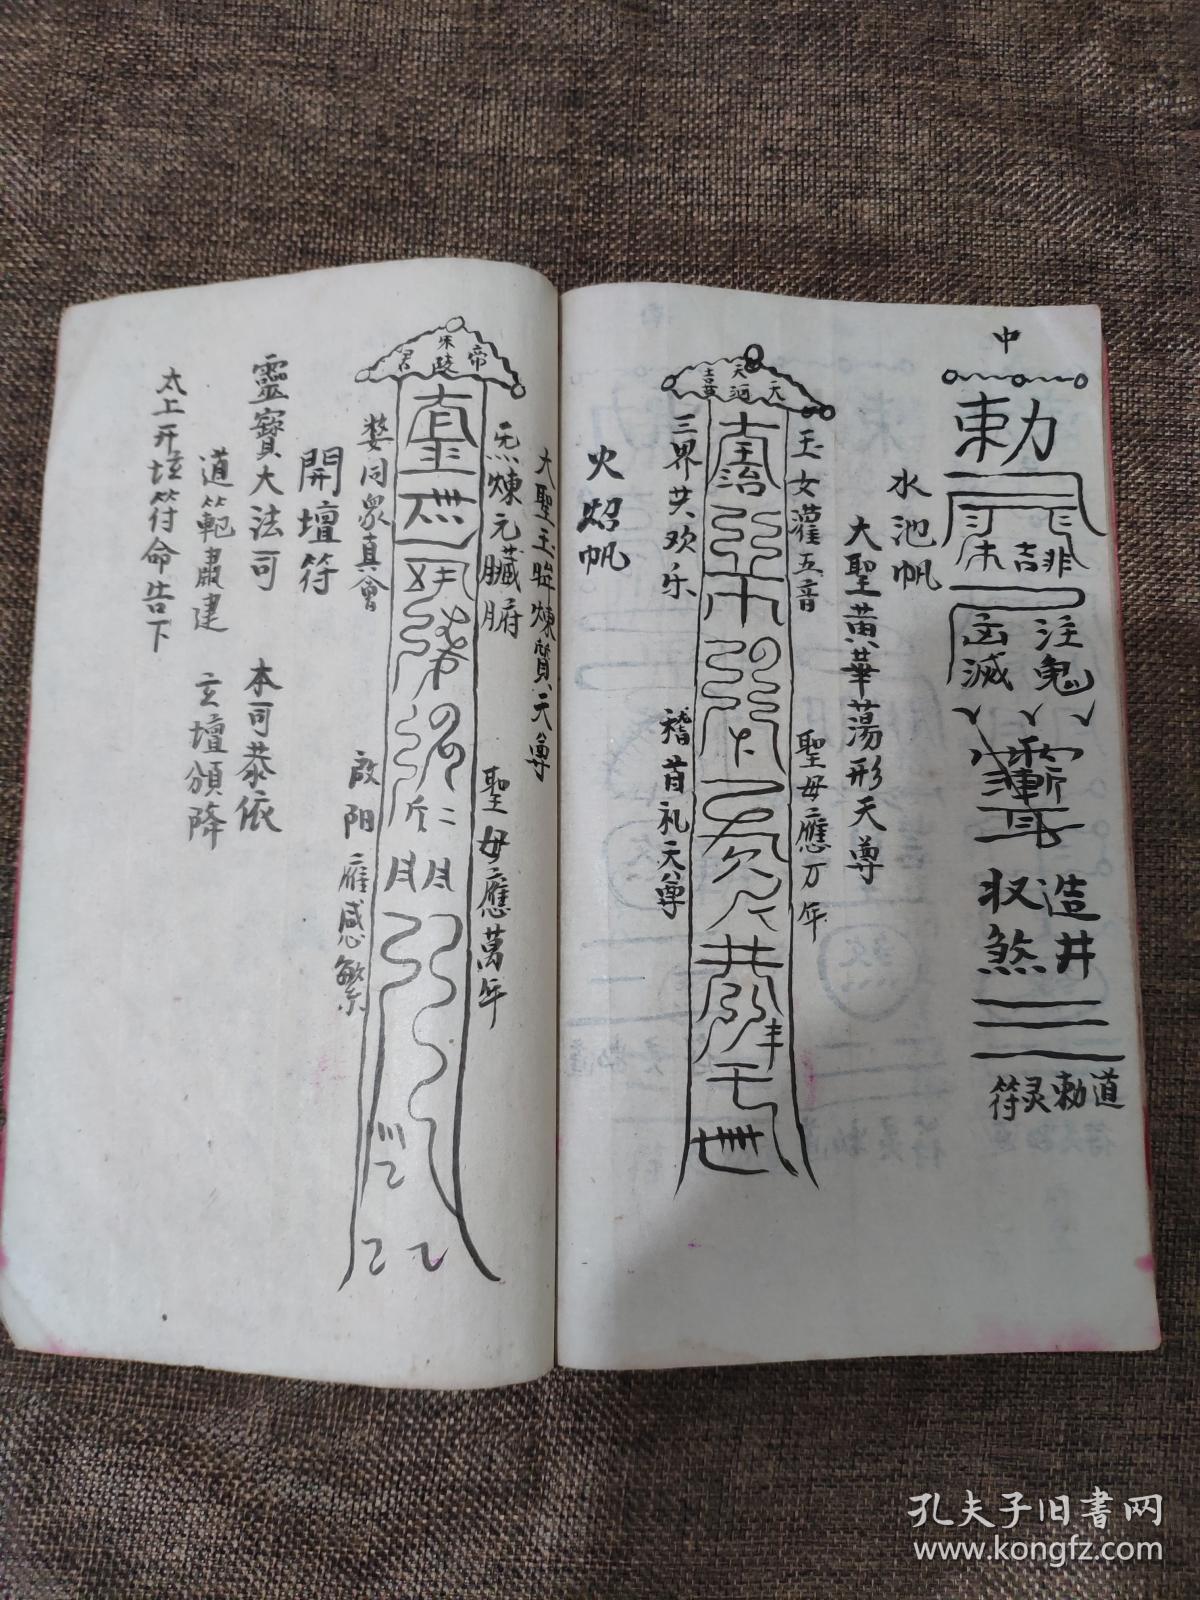 中
勅
注鬼
凶滅
造井
収煞
道勅灵符
水池帆
大聖黄華蕩形天尊
玉女灌五音
聖母應万年
天河天
三界共欢乐
稽首礼天尊
火炤帆
大聖玉眸煉質天尊
炁煉元臟腑
聖母應萬年
朱陵帝君
婺同眾真會
啟阳應感繁
開壇符
靈寶大法司
本司恭依
道範肅建
玄壇頒降
太上开坛符命告下
孔夫子旧书网
www.kongfz.com